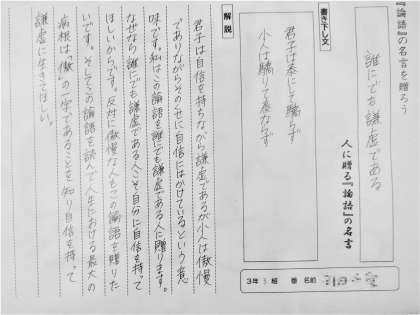 『論語』の名言を贈ろう
誰にでも謙虚である
人に贈る『論語』の名言
3年 3組 番 名前
書き下し文
君子は泰にして驕らず
小人は驕りて泰ならず
解説
君子は自信を持ちながら謙虚であるが小人は傲慢
でありながらそのくせに自信にはかけているという意
味です。私はこの論語を誰にでも謙虚である人に贈ります。
なぜなら誰にでも謙虚である人こそ自分に自信を持って
ほしいからです。反対に傲慢な人もこの論語を贈りた
いです。そしてこの論語を読んで人生における最大の
病根は「傲」の字であることを知り自信を持って
謙虚に生きてほしい。